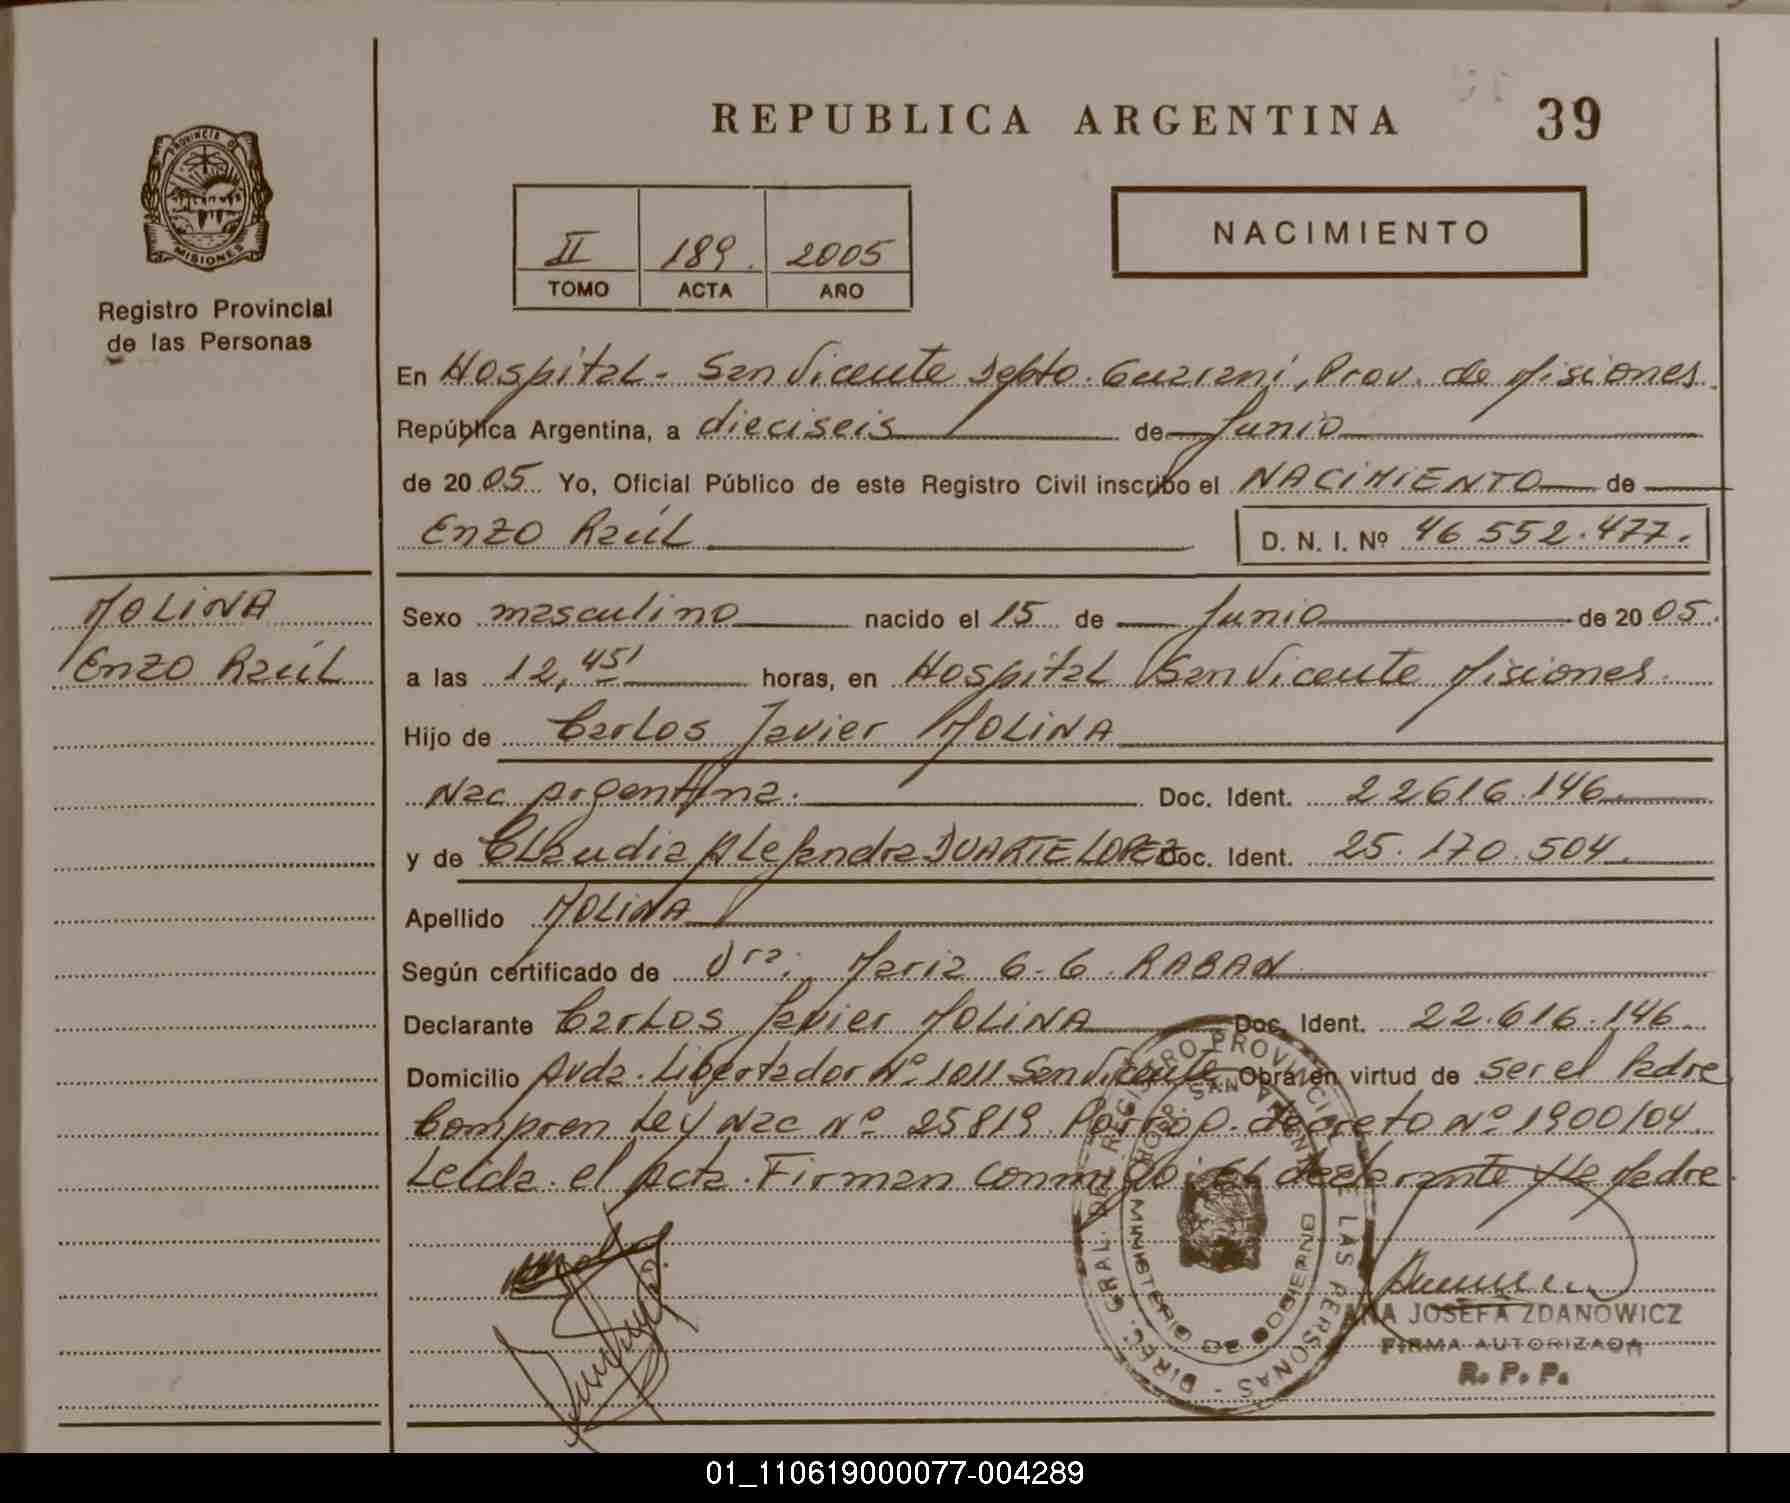 REPUBLICA ARGENTINA 39
PROVINCIA DE MISIONES
Registro Provincial
de las Personas
II 189. 2005
TOMO ACTA AÑO
NACIMIENTO
En Hospital - San Vicente Depto. Guaraní, Prov. de Misiones
República Argentina, a dieciseis de Junio
de 2005 Yo, Oficial Público de este Registro Civil inscribo el NACIMIENTO de
Enzo Raúl D. N. I. Nº 46.552.477.
MOLINA
Enzo Raúl
Sexo masculino nacido el 15 de Junio de 2005.
a las 12,45' horas, en Hospital San Vicente Misiones.
Hijo de Carlos Javier MOLINA
Nac Argentina. Doc. Ident. 22616.146
y de Claudia Alejandra DUARTE LOPEZ Doc. Ident. 25.170.504
Apellido MOLINA
Según certificado de Dra: Maria G. G. RABAN
Declarante Carlos Javier MOLINA Doc. Ident. 22.616.146
Domicilio Avda. Libertador Nº 1011 San Vicente Obra en virtud de ser el Padre
Compren Ley Nac Nº 25819. Por Prop. decreto Nº 1900/04.
Leída el Acta. Firman conmigo: El declarante y la Madre
DIREC. GRAL. DEL REGISTRO PROVINCIAL DE LAS PERSONAS -
HOSP. SAN VICENTE
MINISTERIO DE GOBIERNO
ANA JOSEFA ZDANOWICZ
FIRMA AUTORIZADA
R. P. P.
01_110619000077-004289